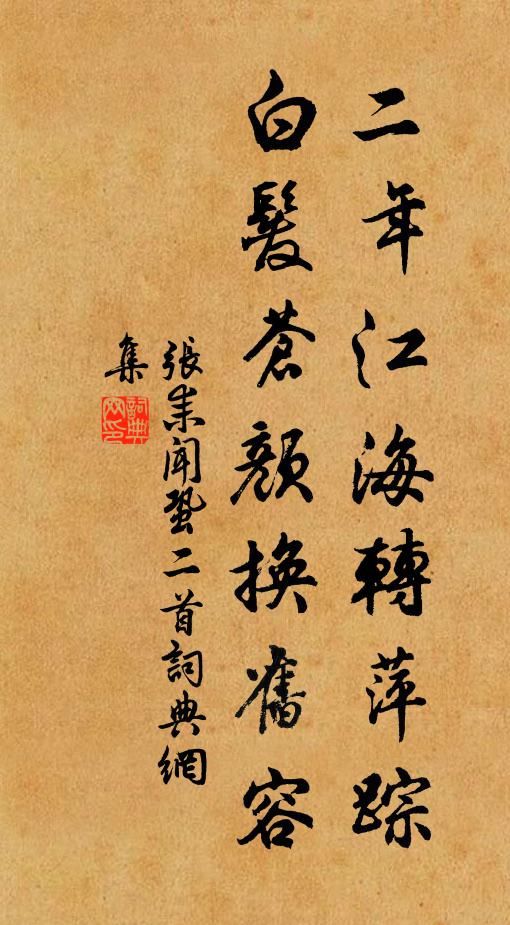 二年江海轉萍踪
白髮蒼顏換舊容
張耒聞蛩二首詞典網
集
詞典網印